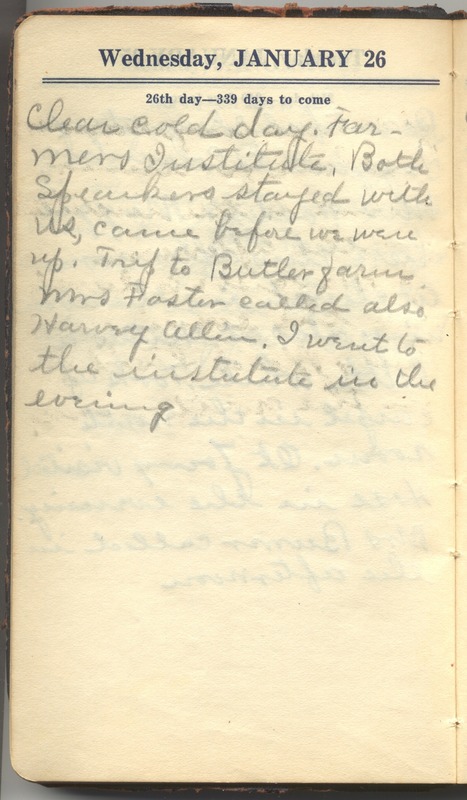 Wednesday, JANUARY 26
26th day—339 days to come
Clear cold day. Far-
mers Institute. Both
Speakers stayed with
us, came before we were
up. Trip to Butler farm.
Mrs Foster called also
Harvey Allen. I went to
the institute in the
evening